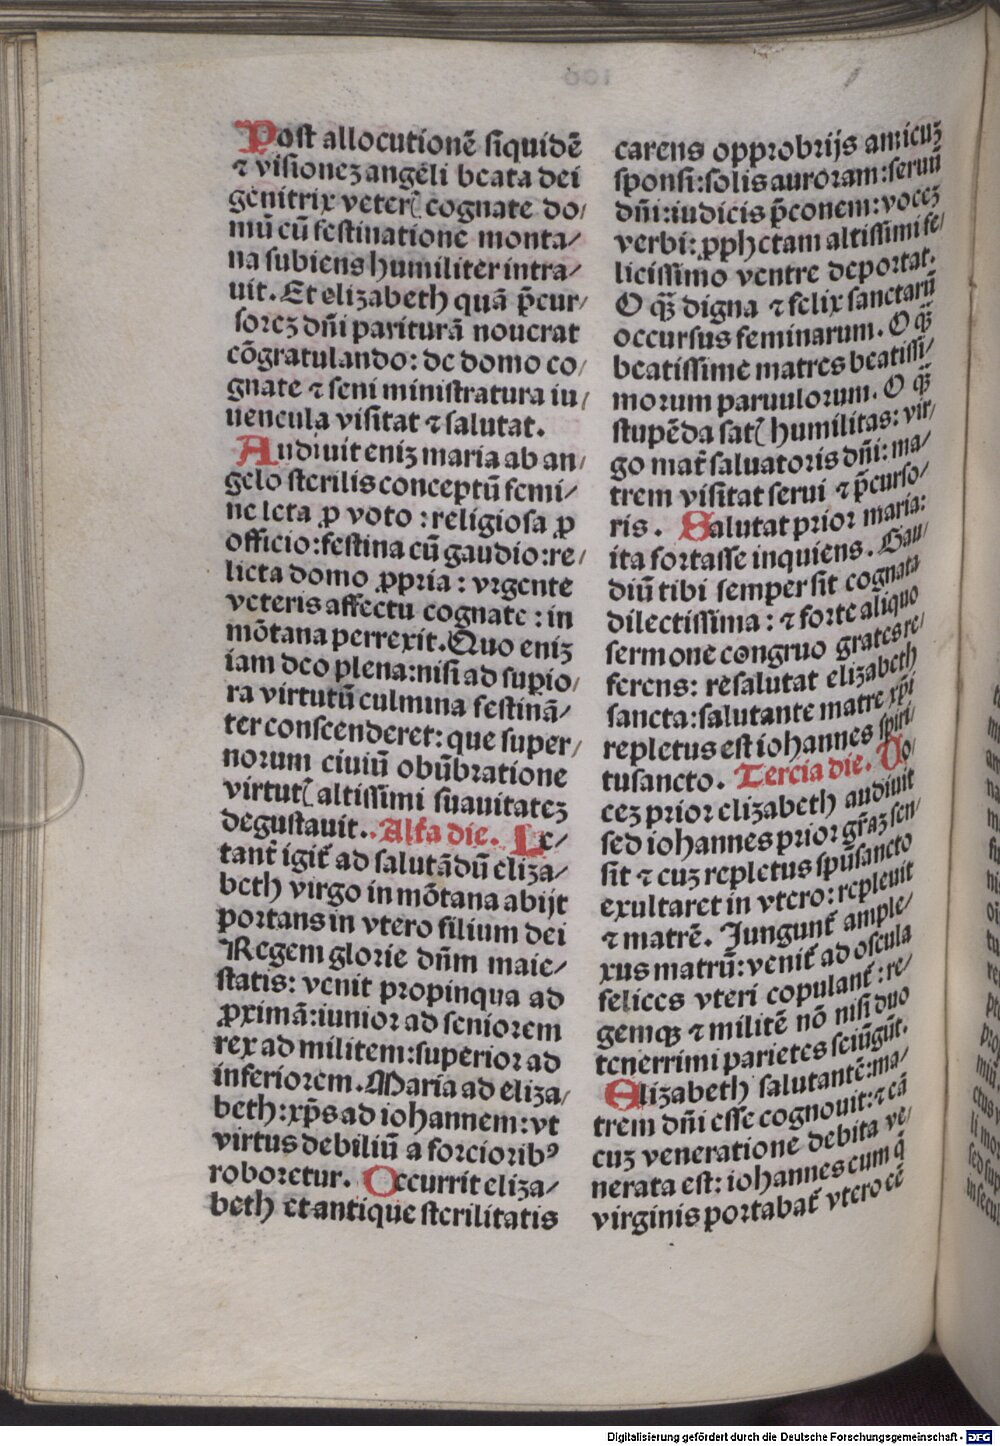 Post allocutionē siquidē
⁊ visionez angeli beata dei
genitrix veterꝭ cognate do/
mū cū festinatione monta/
na subiens humiliter intra/
uit. Et elizabeth quā p̄cur/
sorez dn̄i pariturā nouerat
cōgratulando: de domo co/
gnate ⁊ seni ministratura iu/
uencula visitat ⁊ salutat.
Audiuit eniz maria ab an/
gelo sterilis conceptū femi/
ne leta ꝓ voto : religiosa ꝓ
officio: festina cū gaudio: re/
licta domo ꝓpria : vrgente
veteris affectu cognate : in
mōtana perrexit. Quo eniz
iam deo plena: nisi ad supio/
ra virtutū culmina festinā/
ter conscenderet: que super/
norum ciuiū obūbratione
virtutꝭ altissimi suauitatez
degustauit. Alt̄a die. Le/
tant᷑ igit᷑ ad salutādū eliza/
beth virgo in mōtana abijt
portans in vtero filium dei
Regem glorie dn̄m maie/
statis: venit propinqua ad
ꝓximā: iunior ad seniorem
rex ad militem: superior ad
inferiorem. Maria ad eliza/
beth: xp̄s ad iohannem: vt
virtus debiliū a forcioribꝰ
roboretur. Occurrit eliza/
beth et antique sterilitatis
carens opprobrijs amicuz
sponsi: solis auroram: seruū
dn̄i: iudicis p̄conem: vocez
verbi: ꝓphetam altissimi fe/
licissimo ventre deportat.
O qȝ̄ digna ⁊ felix sanctarū
occursus feminarum. O qȝ̄
beatissime matres beatissi/
morum paruulorum. O qȝ̄
stupēda satꝭ humilitas: vir/
go mat᷑ saluatoris dn̄i: ma/
trem visitat serui ⁊ p̄curso/
ris. Salutat prior maria:
ita fortasse inquiens. Gau/
diū tibi semper sit cognata
dilectissima : ⁊ forte aliquo
sermone congruo grates re/
ferens: resalutat elizabeth
sancta: salutante matre xp̄i
repletus est iohannes spiri/
tusancto. Tercia die. Uo/
cez prior elizabeth audiuit
sed iohannes prior gr̄az sen/
sit ⁊ cuz repletus spūsancto
exultaret in vtero: repleuit
⁊ matrē. Jungunt᷑ ample/
xus matrū: venit᷑ ad oscula
felices vteri copulant᷑ : re/
gemqȝ ⁊ militē nō nisi duo
tenerrimi parietes seiūgūt.
Elizabeth salutantē: ma/
trem dn̄i esse cognouit: ⁊ eā
cuz veneratione debita ve/
nerata est: iohannes cum q̄
virginis portabat᷑ vtero cē
Digitalisierung gefördert durch die Deutsche Forschungsgemeinschaft - DFG